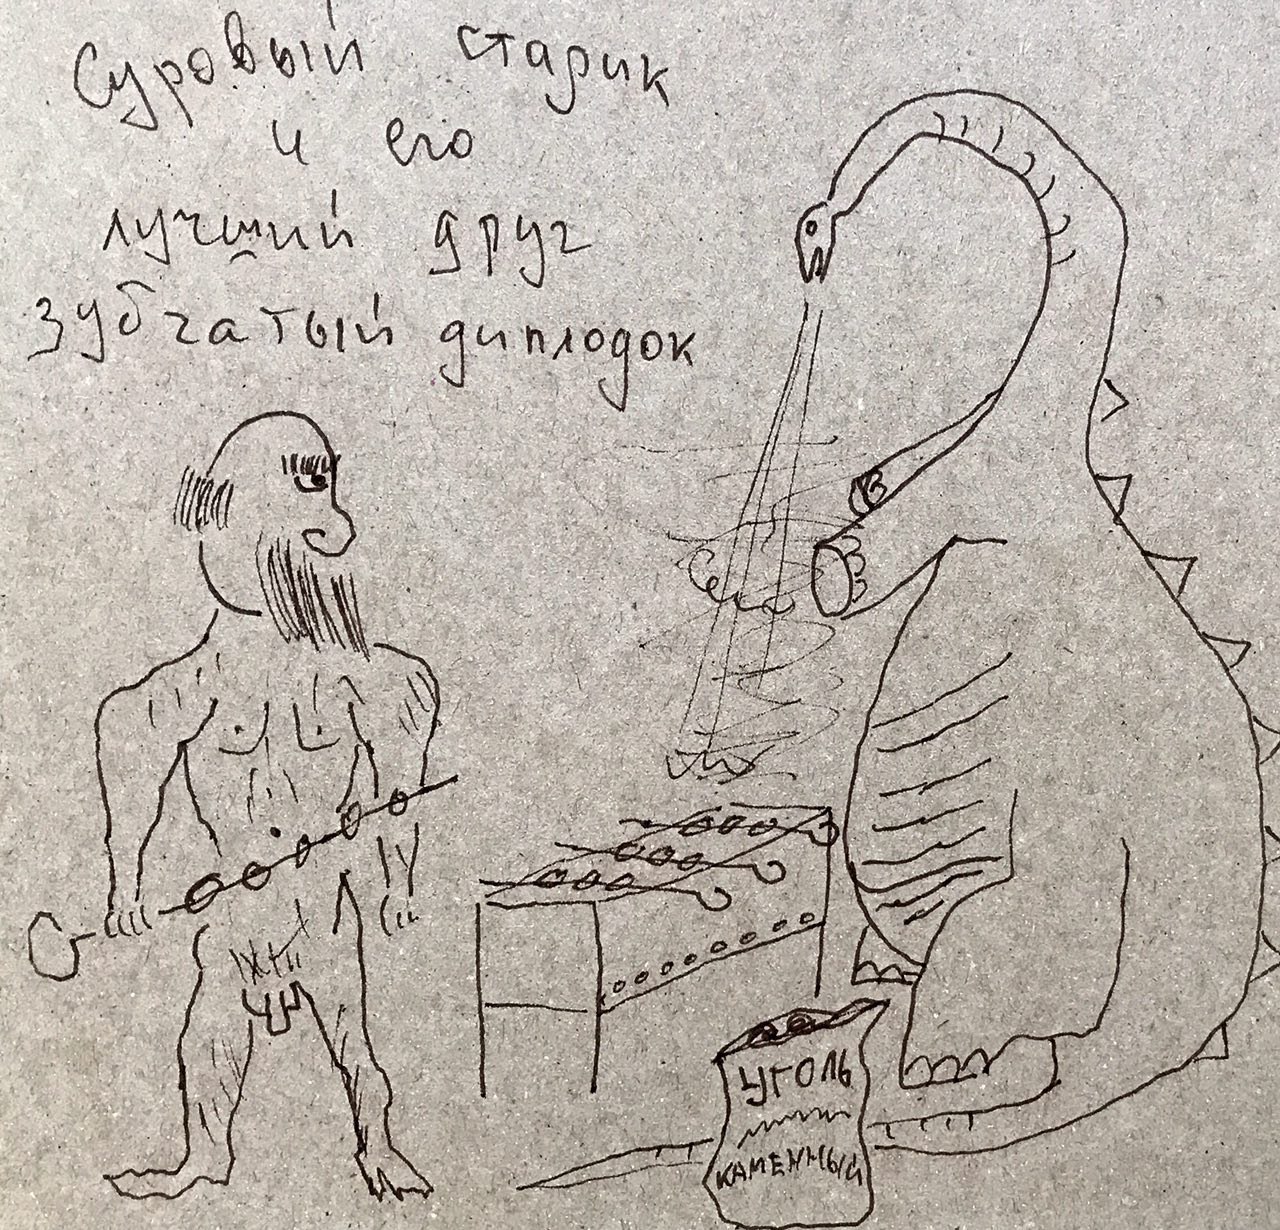 Суровый старик
и его
лучший друг
зубчатый диплодок
УГОЛЬ
КАМЕННЫЙ